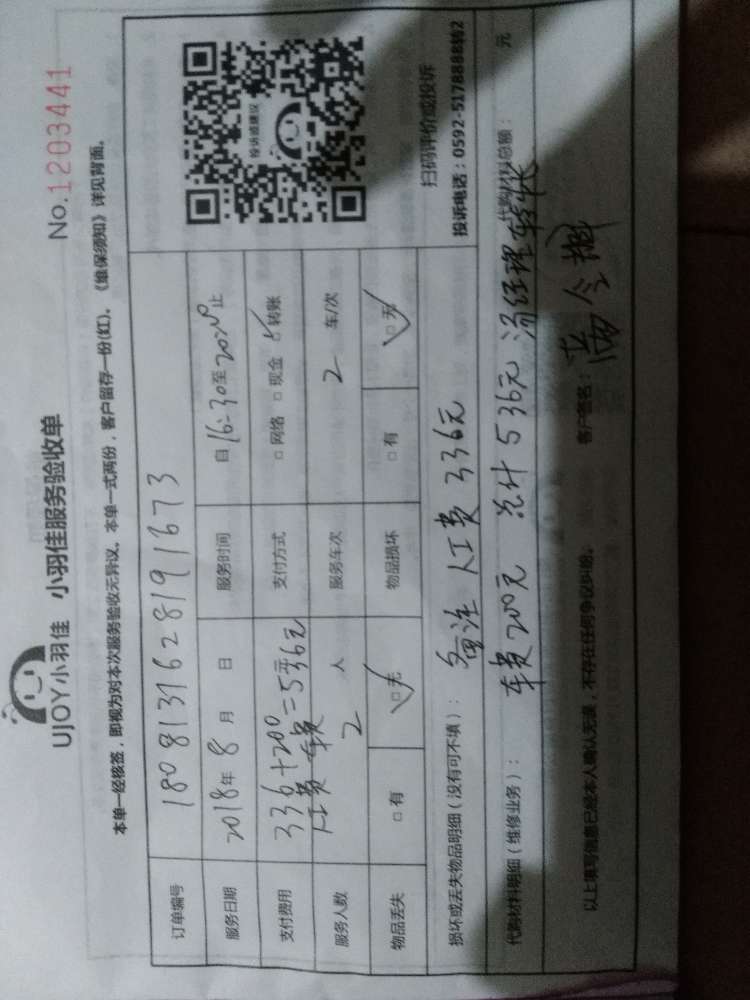 UJOY小羽佳 小羽佳服务验收单
No.1203441
本单一经核签，即视为对本次服务验收无异议。本单一式两份，客户留存一份(红)。《维保须知》详见背面。
订单编号 180813162819 1673
服务日期 2018年 8 月 日 服务时间 自 16:30至20:20止
支付费用 336+200=536元 支付方式 □ 网络 □ 现金 ☑ 转账
人工费 车费
服务人数 2 人 服务车次 2 车/次
物品丢失 □ 有 ☑ 无 物品损坏 □ 有 ☑ 无
投诉或建议
扫码评价或投诉
投诉电话：0592-5178888转2
损坏或丢失物品明细（没有可不填）： 备注 人工费 336元
代购材料明细（维修业务）： 车费200元 总计536元 汤经理转账 代购材料总额： 元
以上填写信息已经本人确认无误，不存在任何争议纠纷。 客户签名：